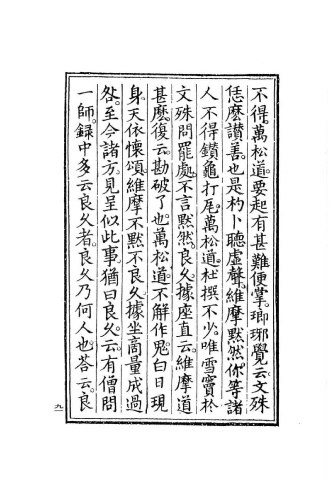 不得。萬松道。要起有甚難便掌。瑯琊覺云。文殊
恁麽讚善。也是杓卜聽虛聲。維摩默然。你等諸
人不得鑽龜打瓦。萬松道。杜撰不少。唯雪竇於
文殊問罷處。不言默然良久據座。直云。維摩道
甚麽。復云。勘破了也。萬松道。不解作鬼。白日現
身。天依懷頌。維摩不默不良久。據坐商量成過
咎。至今諸方。見呈似此事。猶曰良久。云。有僧問
一師。錄中多云良久者。良久乃何人也。荅云。良
九